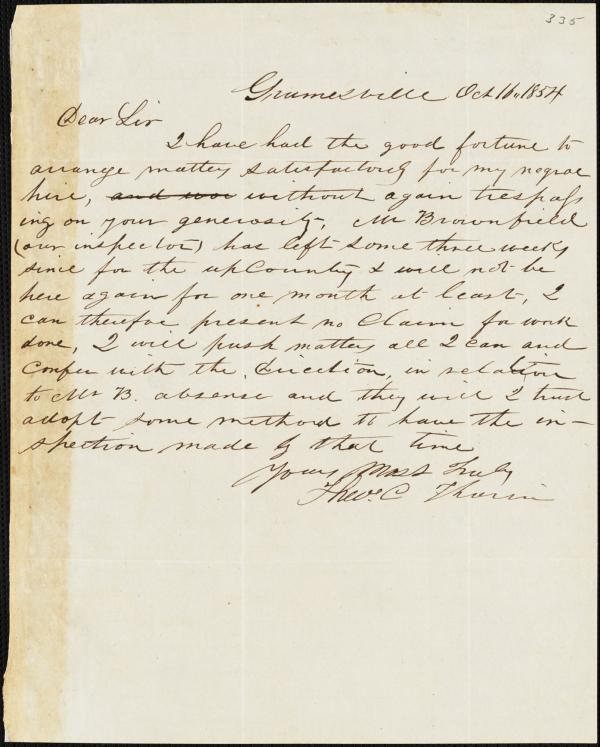 335
Oct 16, 1854
Dear Sir
I have had the good fortune to
arrange matters satisfactorily for my negroe
hire, and wor without again trespass
ing on your generosity, Mr Brownfield
(our inspector) has left some three weeks
since for the upCountry & will not be
here again for one month at least, I
can therefore present no Claim for work
done, I will push matters all I can and
Confer with the direction, in relation
to Mr B. absense and they will I trust
adopt some method to have the in-
spection made by that time
Yours Most Truly
Theo. C